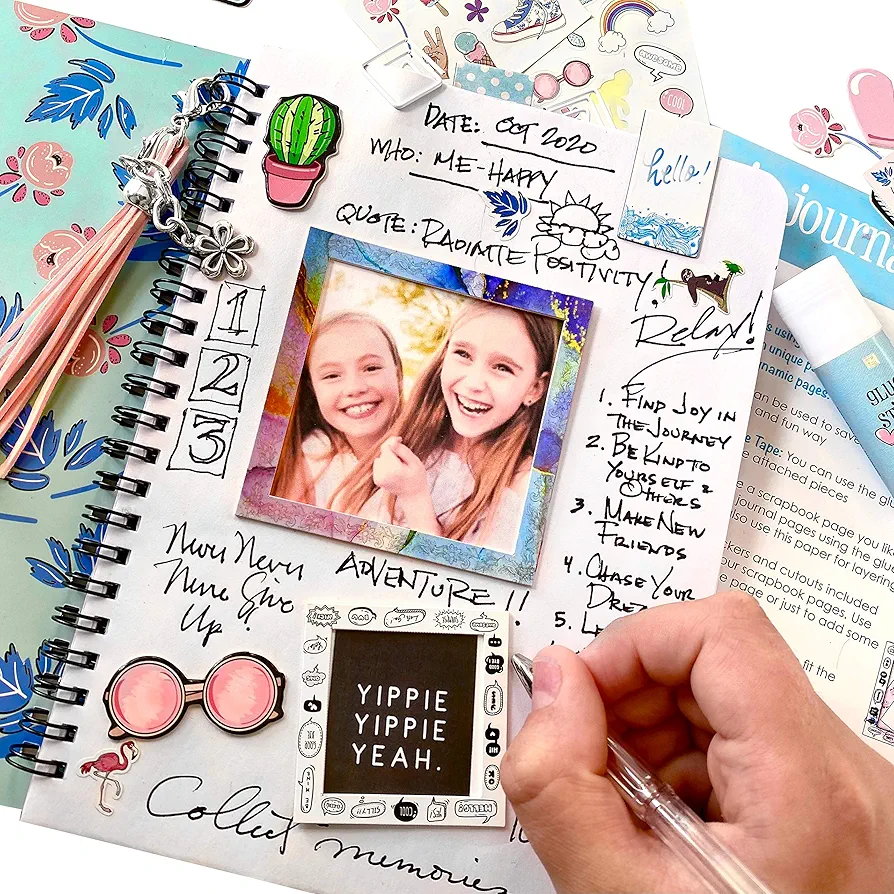 awesome
COOL
DATE: OCT 2020
WHO: ME-HAPPY
hello!
QUOTE: RADIATE POSITIVITY!
journa
Relax!
1
2
3
1. FIND JOY IN
THE JOURNEY
2. BE KIND TO
YOURSELF &
OTHERS
3. MAKE NEW
FRIENDS
4. CHASE YOUR
5.
Never Never
Never Give
Up!
ADVENTURE!!
YIPPIE
YIPPIE
YEAH.
COOL
HELLO!
Collect memories
s using
unique p
ynamic pages.
can be used to save
and fun way
Tape: You can use the g
attached pieces
a scrapbook page you like
journal pages using the glue
also use this paper for layering
kers and cutouts included
our scrapbook pages. Use
page or just to add some
fit the